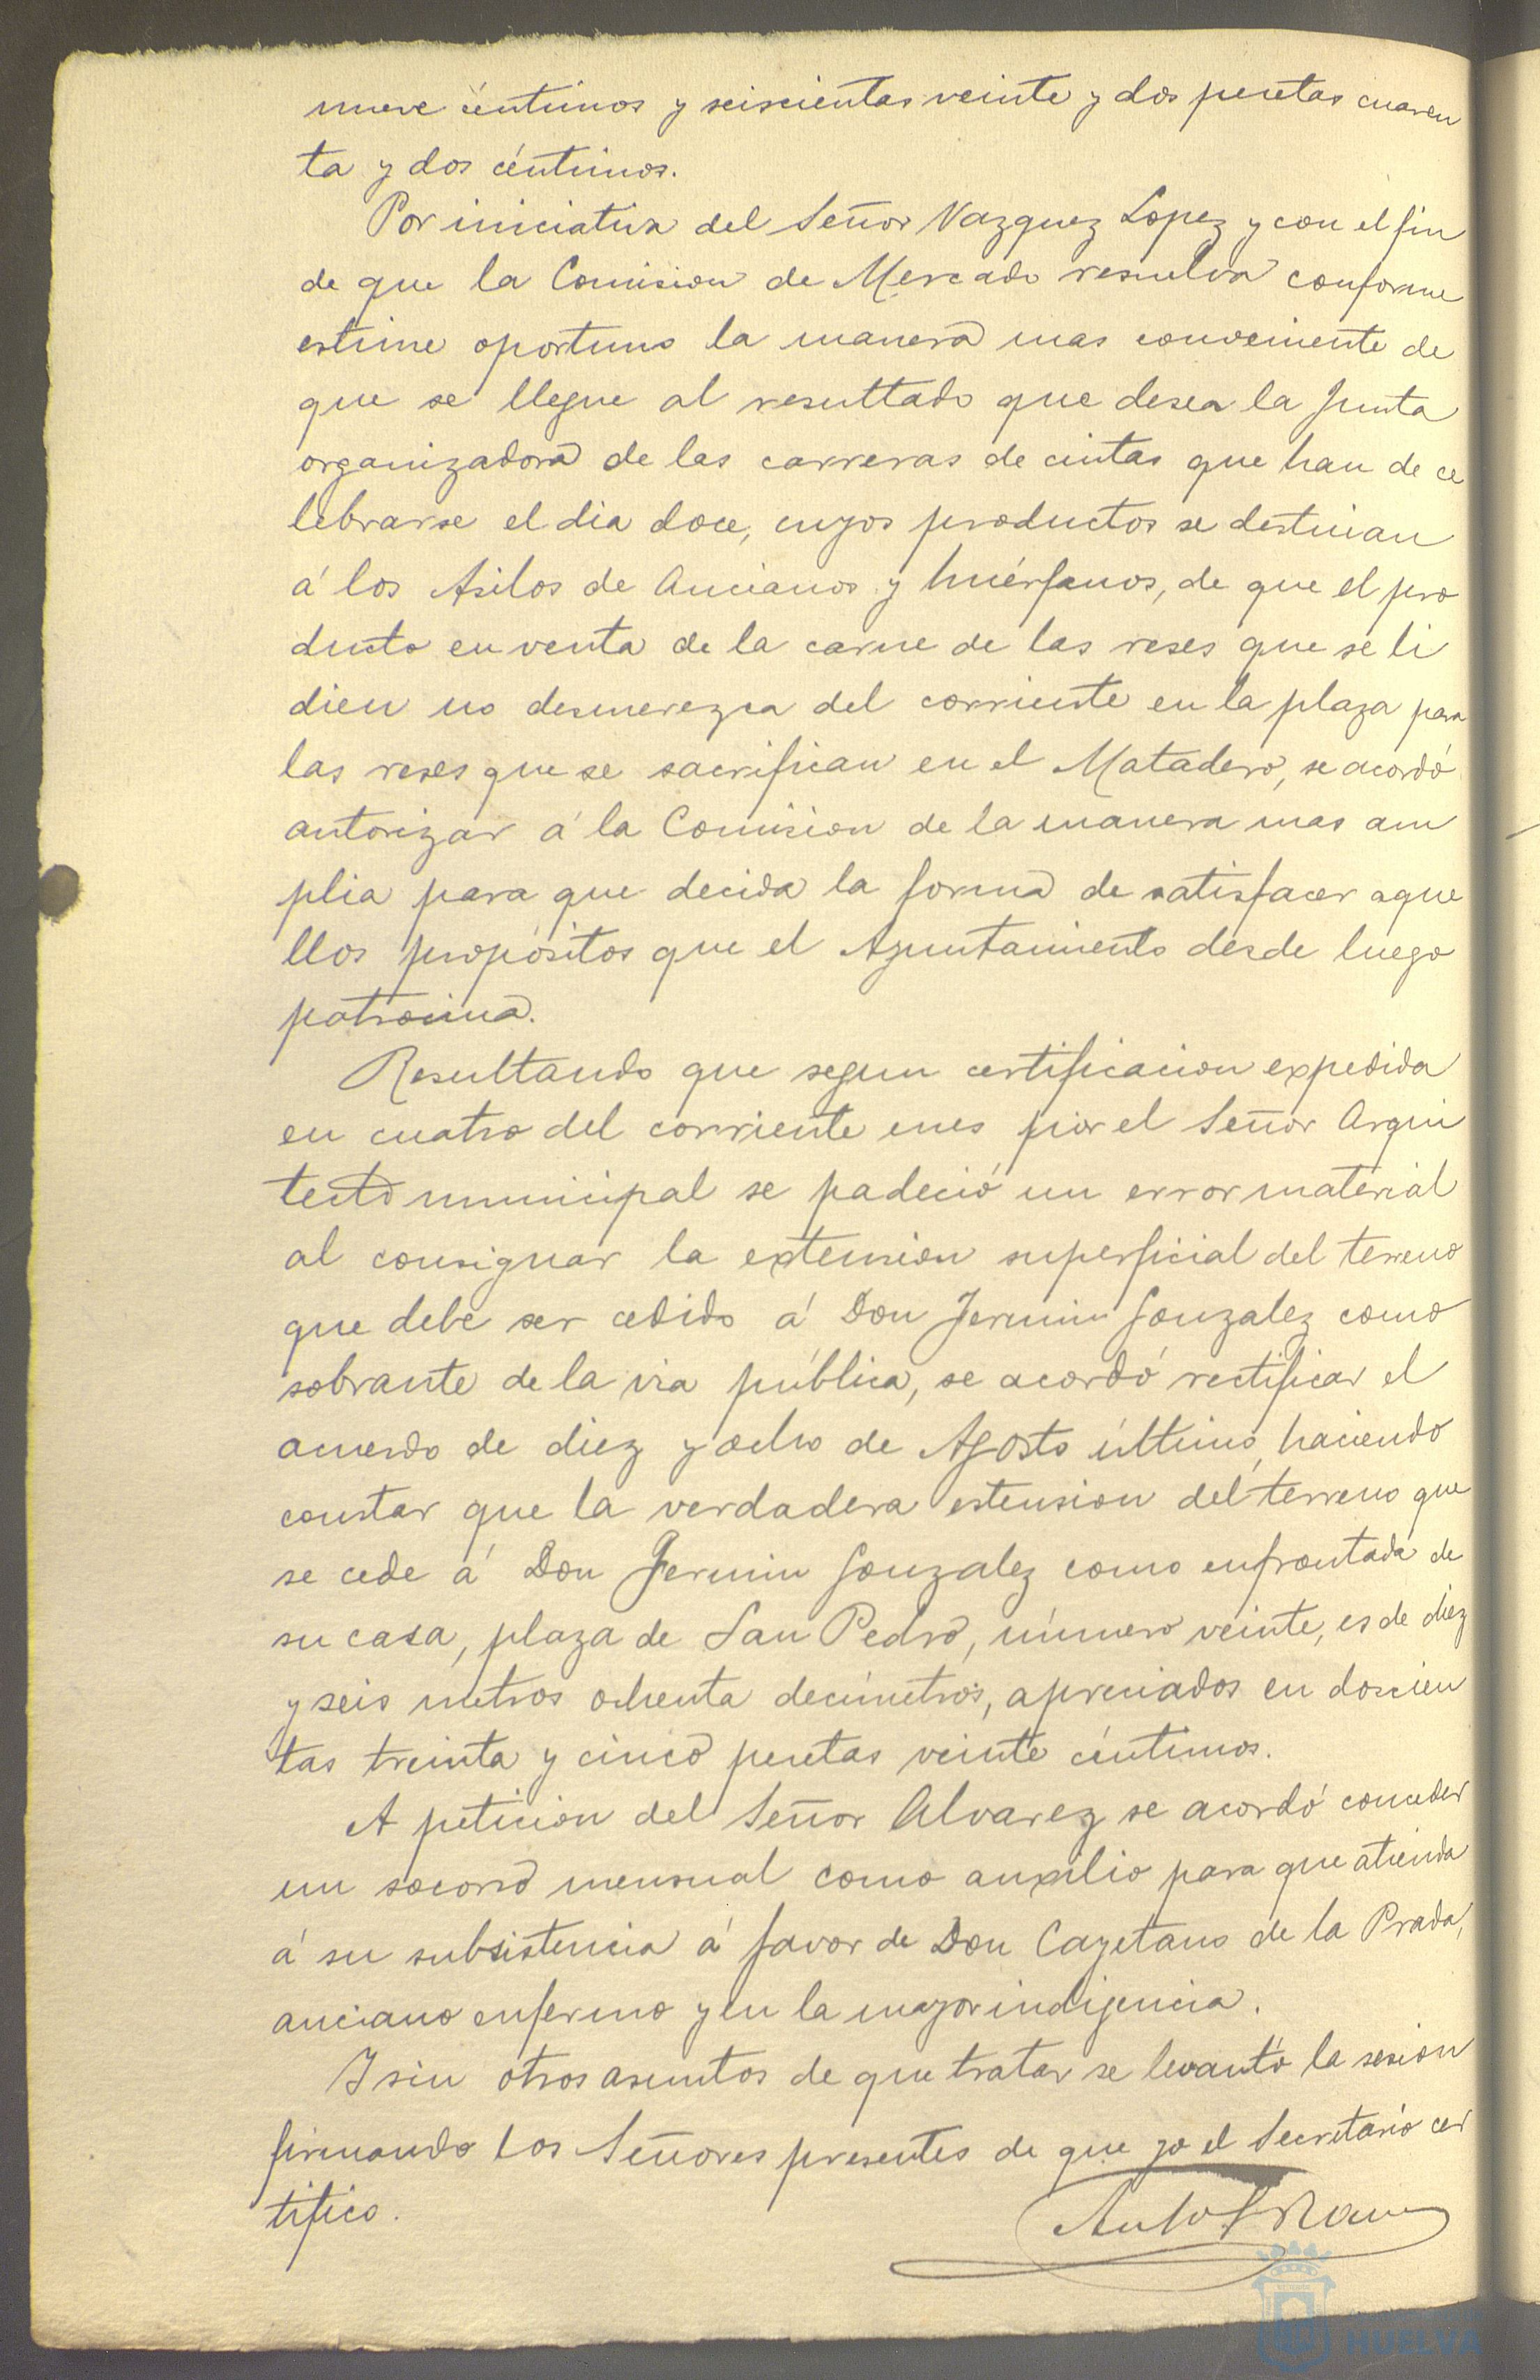 nueve céntimos y seiscientas veinte y dos pesetas cuaren
ta y dos céntimos.
Por iniciativa del Señor Vazquez Lopez y con el fin
de que la Comision de Mercado resuelva conforme
estime oportuno la manera mas conveniente de
que se llegue al resultado que desea la Junta
organizadora de las carreras de cintas que han de ce
lebrarse el dia doce, cuyos productos se destinan
á los Asilos de Ancianos y huérfanos, de que el pro
ducto en venta de la carne de las reses que se li
dien no desmerezca del corriente en la plaza para
las reses que se sacrifican en el Matadero, se acordó
autorizar á la Comision de la manera mas am
plia para que decida la forma de satisfacer aque
llos propósitos que el Ayuntamiento desde luego
patrocina.
Resultando que segun certificacion expedida
en cuatro del corriente mes por el Señor Arqui
tecto municipal se padeció un error material
al consignar la extension superficial del terreno
que debe ser cedido á Don Fermin Gonzalez como
sobrante de la via pública, se acordó rectificar el
acuerdo de diez y ocho de Agosto último, haciendo
constar que la verdadera estension del terreno que
se cede á Don Fermin Gonzalez como enfrontada de
su casa, plaza de San Pedro, número veinte, es de diez
y seis metros ochenta decímetros, apreciados en doscien
tas treinta y cinco pesetas veinte céntimos.
A peticion del Señor Alvarez se acordó conceder
un socorro mensual como auxilio para que atienda
á su subsistencia á favor de Don Cayetano de la Prada,
anciano enfermo y en la mayor indigencia.
Y sin otros asuntos de que tratar se levantó la sesion
firmando los Señores presentes de que yo el Secretario cer
tifico.
HUELVA